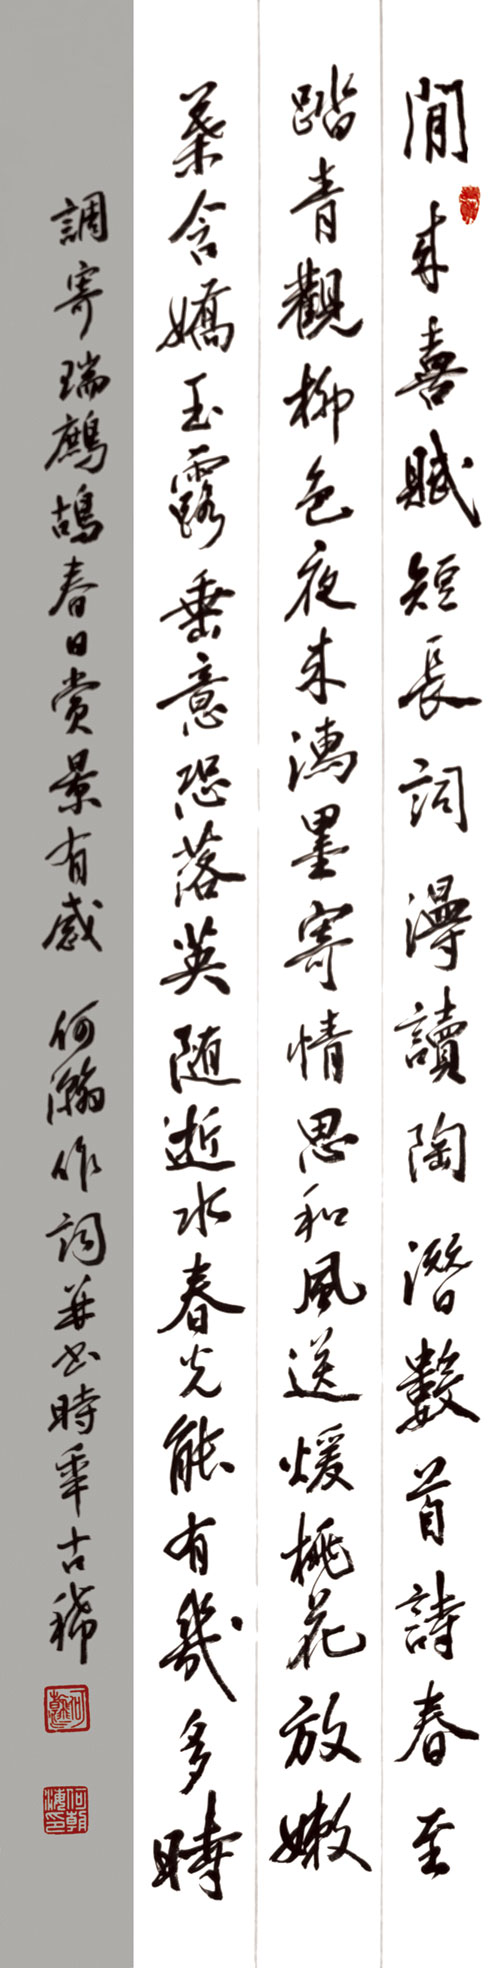 閒来喜賦短長詞漫讀陶潛數首詩春至
踏青觀柳色夜来墨寄情思和風送煖桃花放嫩
葉含嬌玉露垂意恐落英随逝水春光能有幾多時
調寄瑞鷓鴣春日賞景有感 何瀚作詞并書時年古稀